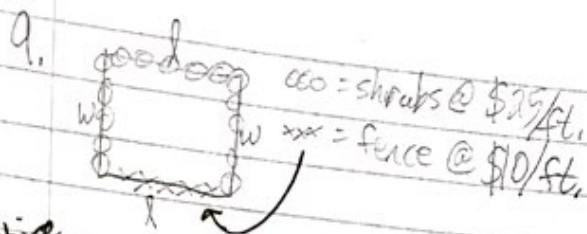 9.
l
ooo = shrubs @ $25/ft.
w w xxx = fence @ $10/ft.
l